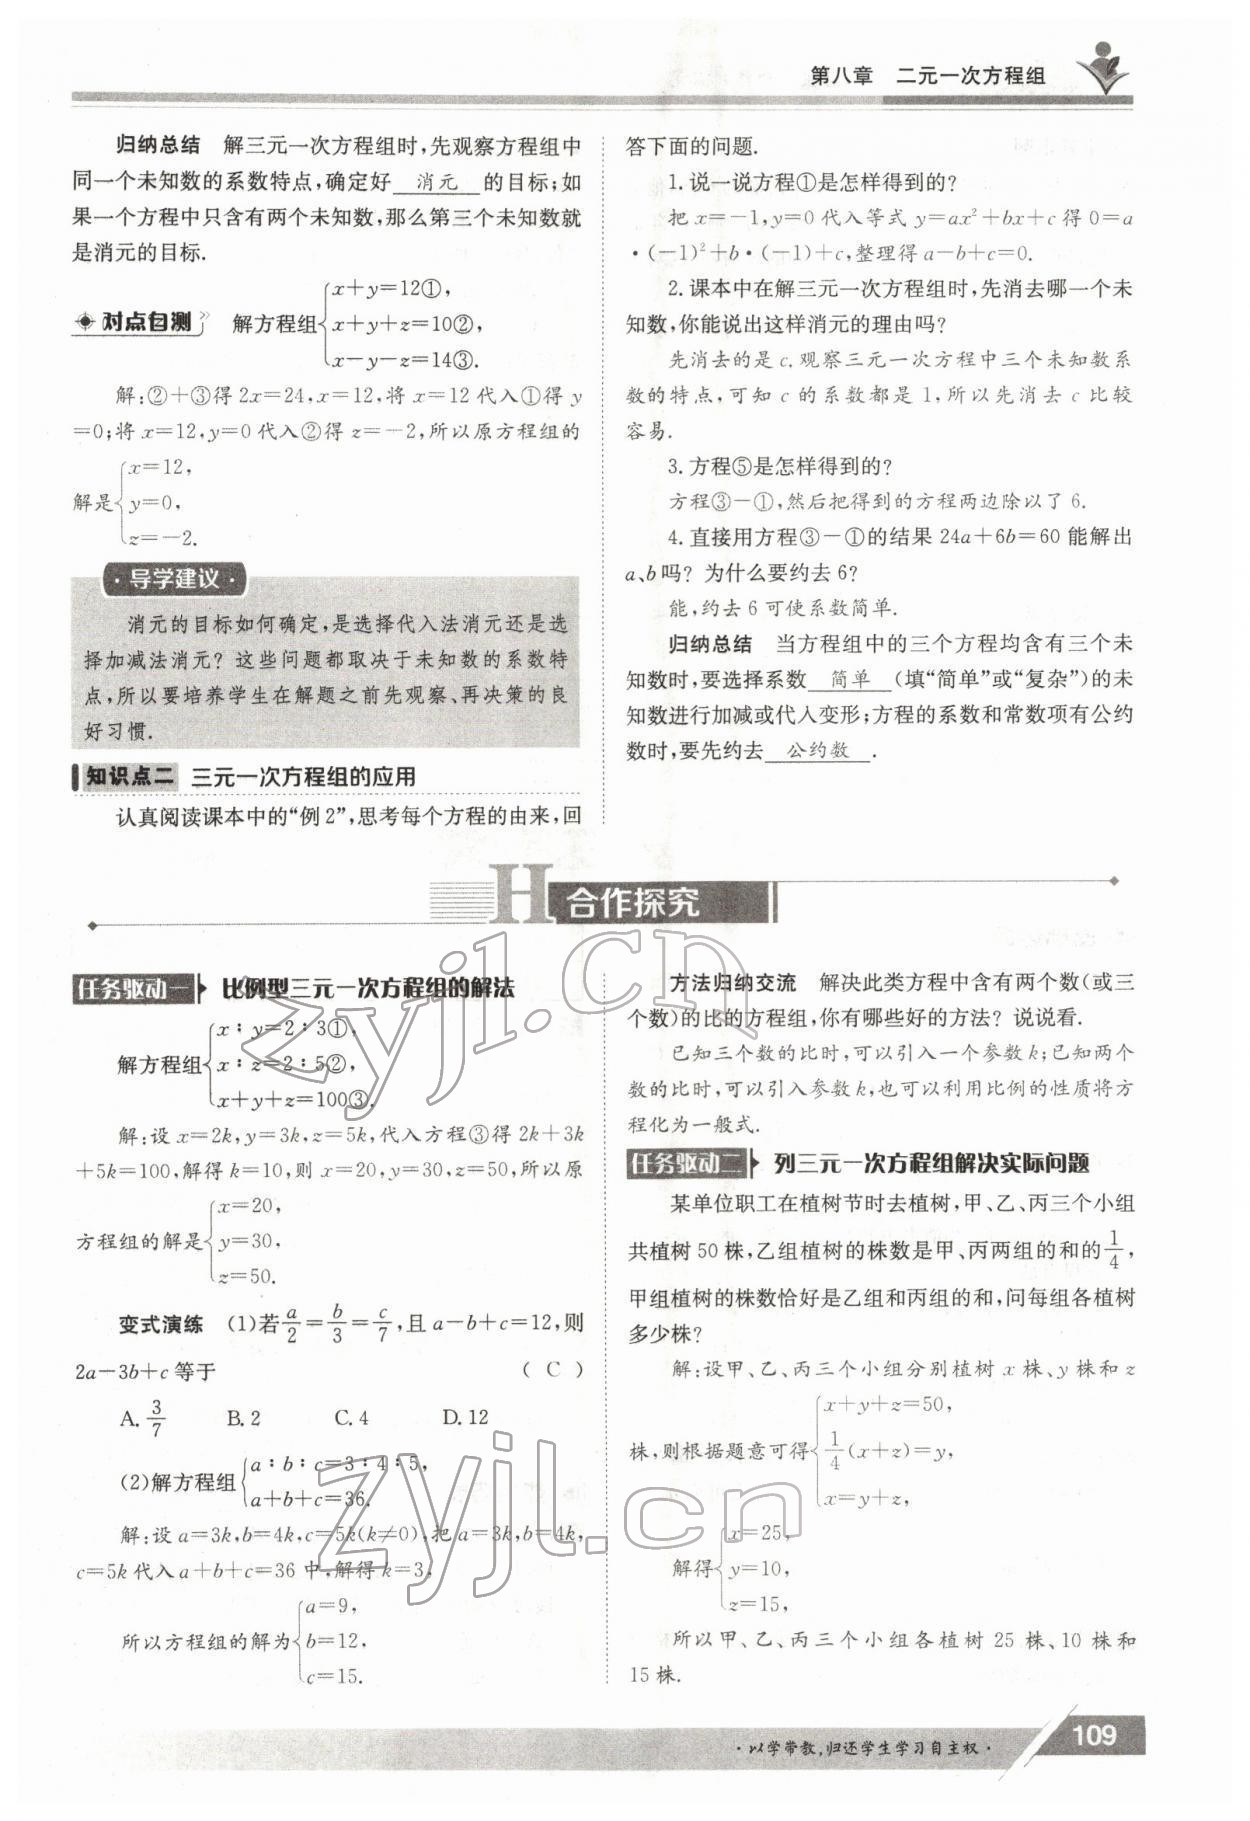 第八章　二元一次方程组
归纳总结　解三元一次方程组时,先观察方程组中
同一个未知数的系数特点,确定好 消元 的目标;如
果一个方程中只含有两个未知数,那么第三个未知数就
是消元的目标.
对点自测　解方程组
x+y=12①,
x+y+z=10②,
x-y-z=14③.
解:②+③得 2x=24,x=12,将 x=12 代入①得 y
=0;将 x=12,y=0 代入②得 z=-2,所以原方程组的
解是
x=12,
y=0,
z=-2.
·导学建议·
消元的目标如何确定,是选择代入法消元还是选
择加减法消元? 这些问题都取决于未知数的系数特
点,所以要培养学生在解题之前先观察、再决策的良
好习惯.
知识点二　三元一次方程组的应用
认真阅读课本中的“例 2”,思考每个方程的由来,回
答下面的问题.
1. 说一说方程①是怎样得到的?
把 x=-1,y=0 代入等式 y=ax²+bx+c 得 0=a
·(-1)²+b·(-1)+c,整理得 a-b+c=0.
2. 课本中在解三元一次方程组时,先消去哪一个未
知数,你能说出这样消元的理由吗?
先消去的是 c. 观察三元一次方程中三个未知数系
数的特点,可知 c 的系数都是 1,所以先消去 c 比较
容易.
3. 方程⑤是怎样得到的?
方程③-①,然后把得到的方程两边除以了 6.
4. 直接用方程③-①的结果 24a+6b=60 能解出
a、b吗? 为什么要约去 6?
能,约去 6 可使系数简单.
归纳总结　当方程组中的三个方程均含有三个未
知数时,要选择系数 简单 (填“简单”或“复杂”)的未
知数进行加减或代入变形;方程的系数和常数项有公约
数时,要先约去 公约数 .
H 合作探究
任务驱动一　比例型三元一次方程组的解法
解方程组
x∶y=2∶3①,
x∶z=2∶5②,
x+y+z=100③.
解:设 x=2k,y=3k,z=5k,代入方程③得 2k+3k
+5k=100,解得 k=10,则 x=20,y=30,z=50,所以原
方程组的解是
x=20,
y=30,
z=50.
变式演练　(1)若 a/2 = b/3 = c/7 ,且 a-b+c=12,则
2a-3b+c 等于 ( C )
A. 3/7　B. 2　C. 4　D. 12
(2)解方程组
a∶b∶c=3∶4∶5,
a+b+c=36.
解:设 a=3k,b=4k,c=5k(k≠0),把 a=3k,b=4k,
c=5k 代入 a+b+c=36 中,解得 k=3,
所以方程组的解为
a=9,
b=12,
c=15.
方法归纳交流　解决此类方程中含有两个数(或三
个数)的比的方程组,你有哪些好的方法? 说说看.
已知三个数的比时,可以引入一个参数 k;已知两个
数的比时,可以引入参数 k,也可以利用比例的性质将方
程化为一般式.
任务驱动二　列三元一次方程组解决实际问题
某单位职工在植树节时去植树,甲、乙、丙三个小组
共植树 50 株,乙组植树的株数是甲、丙两组的和的 1/4 ,
甲组植树的株数恰好是乙组和丙组的和,问每组各植树
多少株?
解:设甲、乙、丙三个小组分别植树 x 株、y 株和 z
株,则根据题意可得
x+y+z=50,
1/4 (x+z)=y,
x=y+z,
解得
x=25,
y=10,
z=15,
所以甲、乙、丙三个小组各植树 25 株、10 株和
15 株.
zyjl.cn
zyjl.cn
·以学带教,归还学生学习自主权·
109